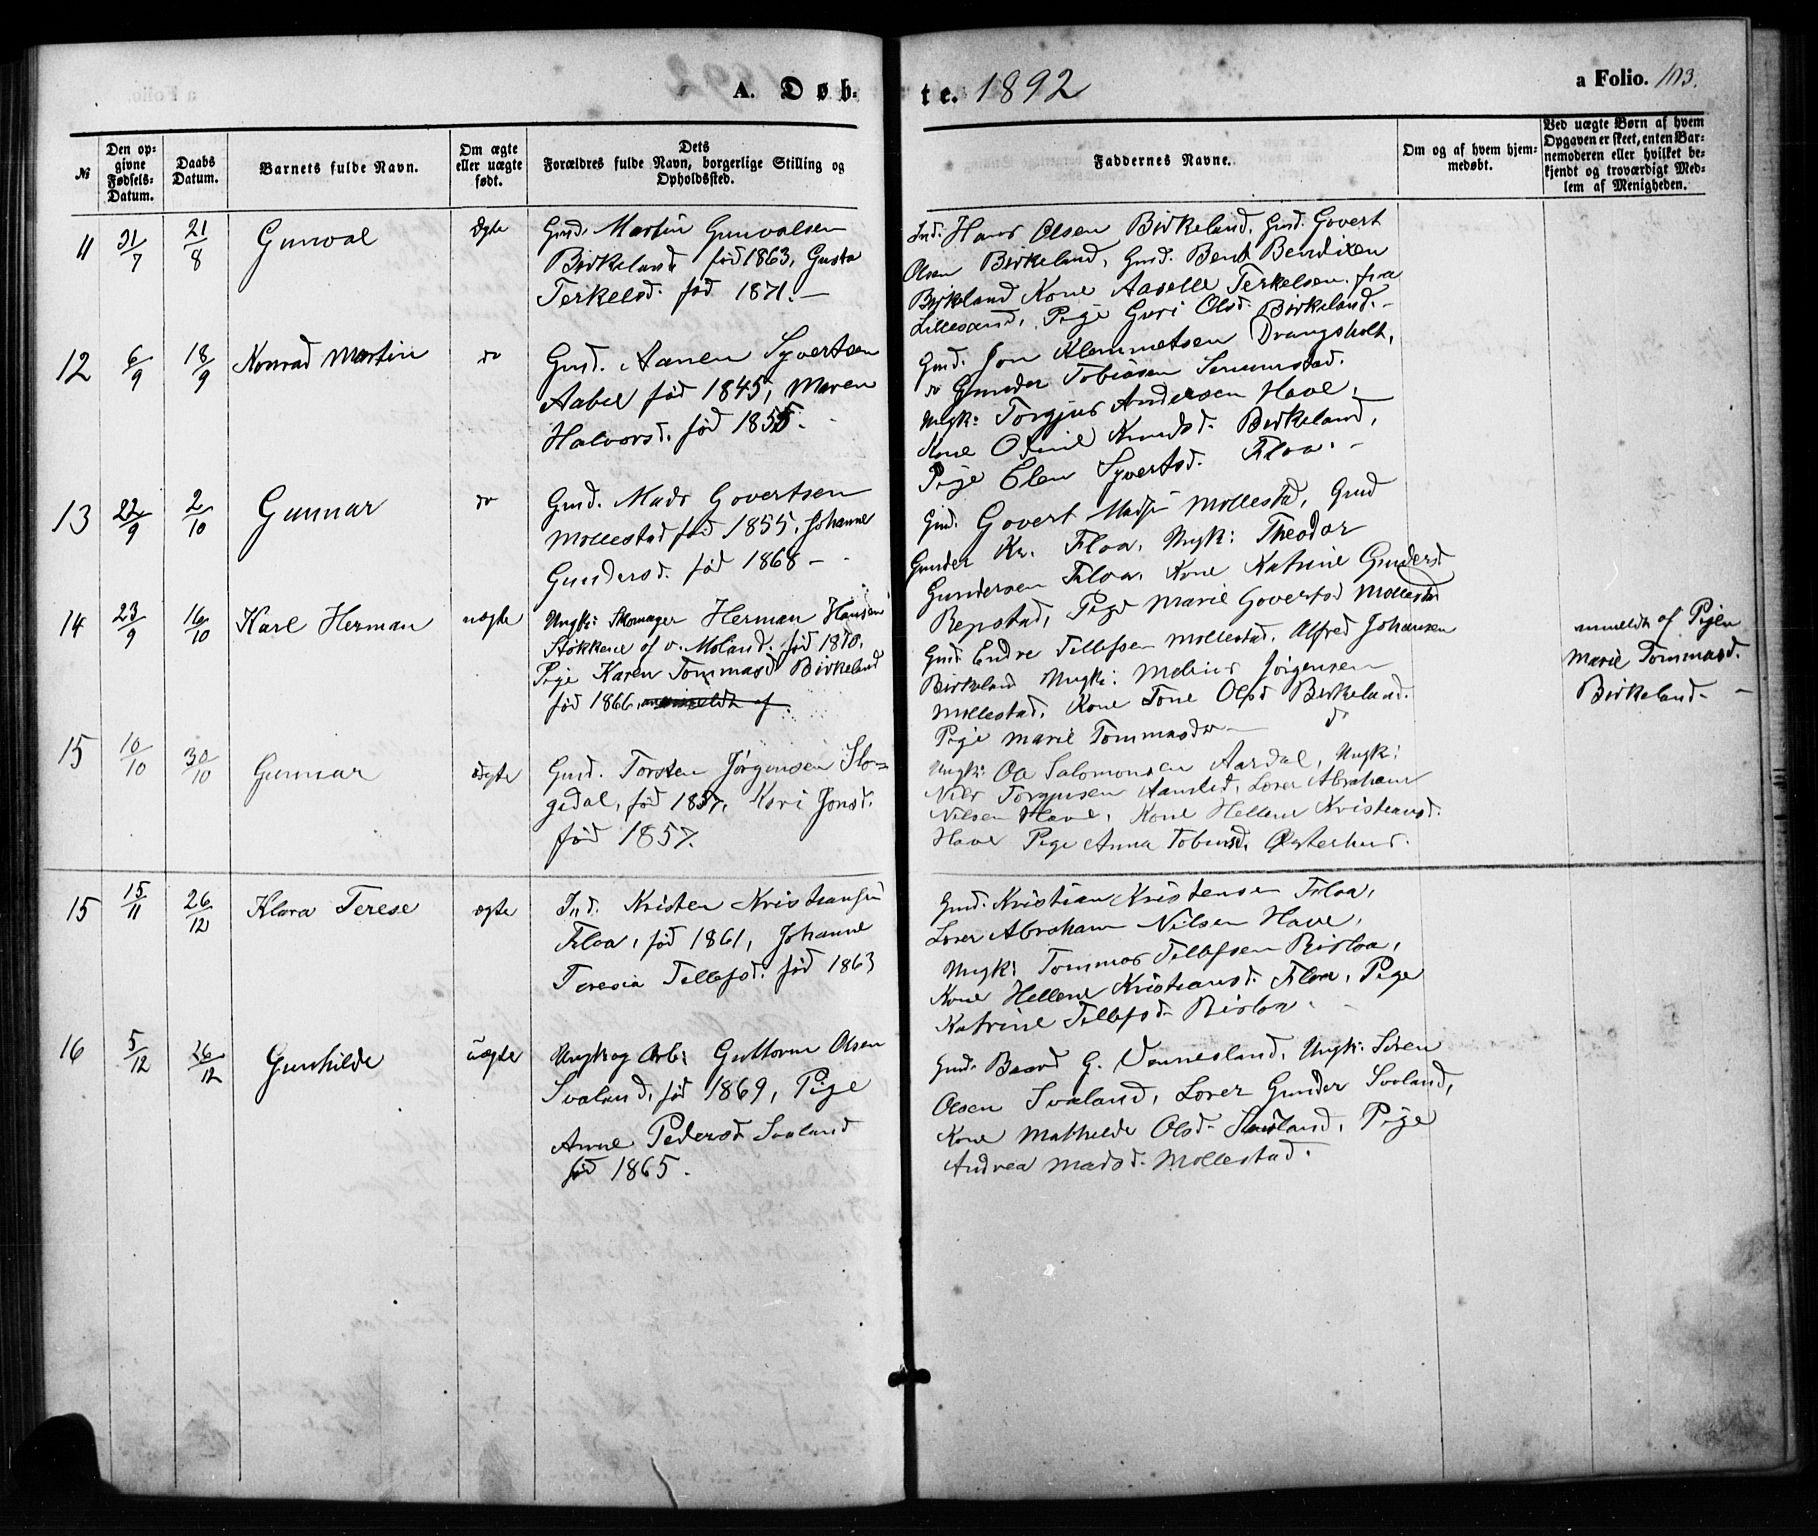 A. Døb-
te. 1892
a Folio. 103.
№
Den op-
givne
Fødsels-
Datum.
Daabs
Datum.
Barnets fulde Navn.
Om ægte
eller uægte
født.
Dets
Forældres fulde Navn, borgerlige Stilling og
Opholdssted.
Faddernes Navne.
Om og af hvem hjem-
medøbt.
Ved uægte Børn af hvem
Opgaven er skeet, enten Bar-
nemoderen eller hvilket be-
kjendt og troværdigt Med-
lem af Menigheden.
11 31/7 21/8 Gunval ægte
Gmd. Martin Gunvalsen
Birkeland født 1863, Gusta
Terkelsd. fød 1871. –
Ind. Hans Olsen Birkeland, Gmd. Govert
Olsen Birkeland, Gmd. Bent Bendixen
Birkeland Kone Aaselle Terkelsen fra
Lillesand, Pige Guri Olsd. Birkeland. –
12 6/9 18/9 Konrad Martin do
Gmd. Aanen Syvertsen
Aabel fød 1845, Maren
Halvorsd. fød 1855. –
Gmd. Jon Klemmetsen Drangsholt,
do Gunder Tobiasen Senumstad.
Ungk: Torgjus Andersen Have,
Kone Knudsd. Birkeland,
Pige Elen Syvertsd. Floa. –
13 22/9 2/10 Gunnar do
Gmd. Mads Govertsen
Mollestad fød 1855, Johanne
Gundersd. fød 1868 –
Gmd. Govert Madsn Mollestad, Gmd
Gunder Kr. Floa, Ungk: Theodor
Gundersen Floa, Kone Katrine Gundersd
Repstad, Pige Marie Govertsd Mollestad
14 23/9 16/10 Karl Herman uægte
Ungk: Skomager Herman Hansen
Støkkene af v. Moland, fød 1870,
Pige Karen Tommasd Birkeland
fød 1866, anmeldt af.
Gmd. Endre Tellefsen Mollestad, Alfred Johansen
Birkeland Ungk: Melius Jørgensen
Mollestad, Kone Tone Olsd Birkeland.
Pige Marie Tommasdr – do
anmeldt af Pigen
Marie Tommasd.
Birkeland. –
15 10/10 30/10 Gunnar ægte
Gmd. Torsten Jørgensen Slo-
gedal, fød 1857, Kari Jonsd.
fød 1857.
Ungk: Oa Salomonsen Aardal, Ungk:
Nils Torgjusen Aamlid, Lærer Abraham
Nilsen Have, Kone Hellene Kristiansd.
Have Pige Anna Tobiasd. Østerhus.
15 15/11 26/12 Klara Terese ægte
Ind. Kristen Kristiansen
Floa, fød 1861, Johanne
Teresia Tellefsd. fød 1863
Gmd. Kristian Kristensen Floa,
Lærer Abraham Nilsen Have,
Ungk: Tommas Tellefsen Risloa,
Kone Hellene Kristiansd. Floa, Pige
Katrine Tellefsd. Risloa.
16 5/12 26/12 Gunhilde uægte
Ungk og Arb: Guttorm Olsen
Svaland, fød 1869, Pige
Anne Pedersd Svaland
fød 1865.
Gmd. Baard G. Vennesland, Ungk: Søren
Olsen Svaland, Lærer Gunder Svaland,
Kone Mathilde Olsd. Svaland, Pige
Andrea Madsd. Mollestad.